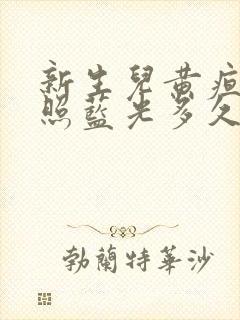 新生兒黃疸
照藍光多久
勃蘭特華沙